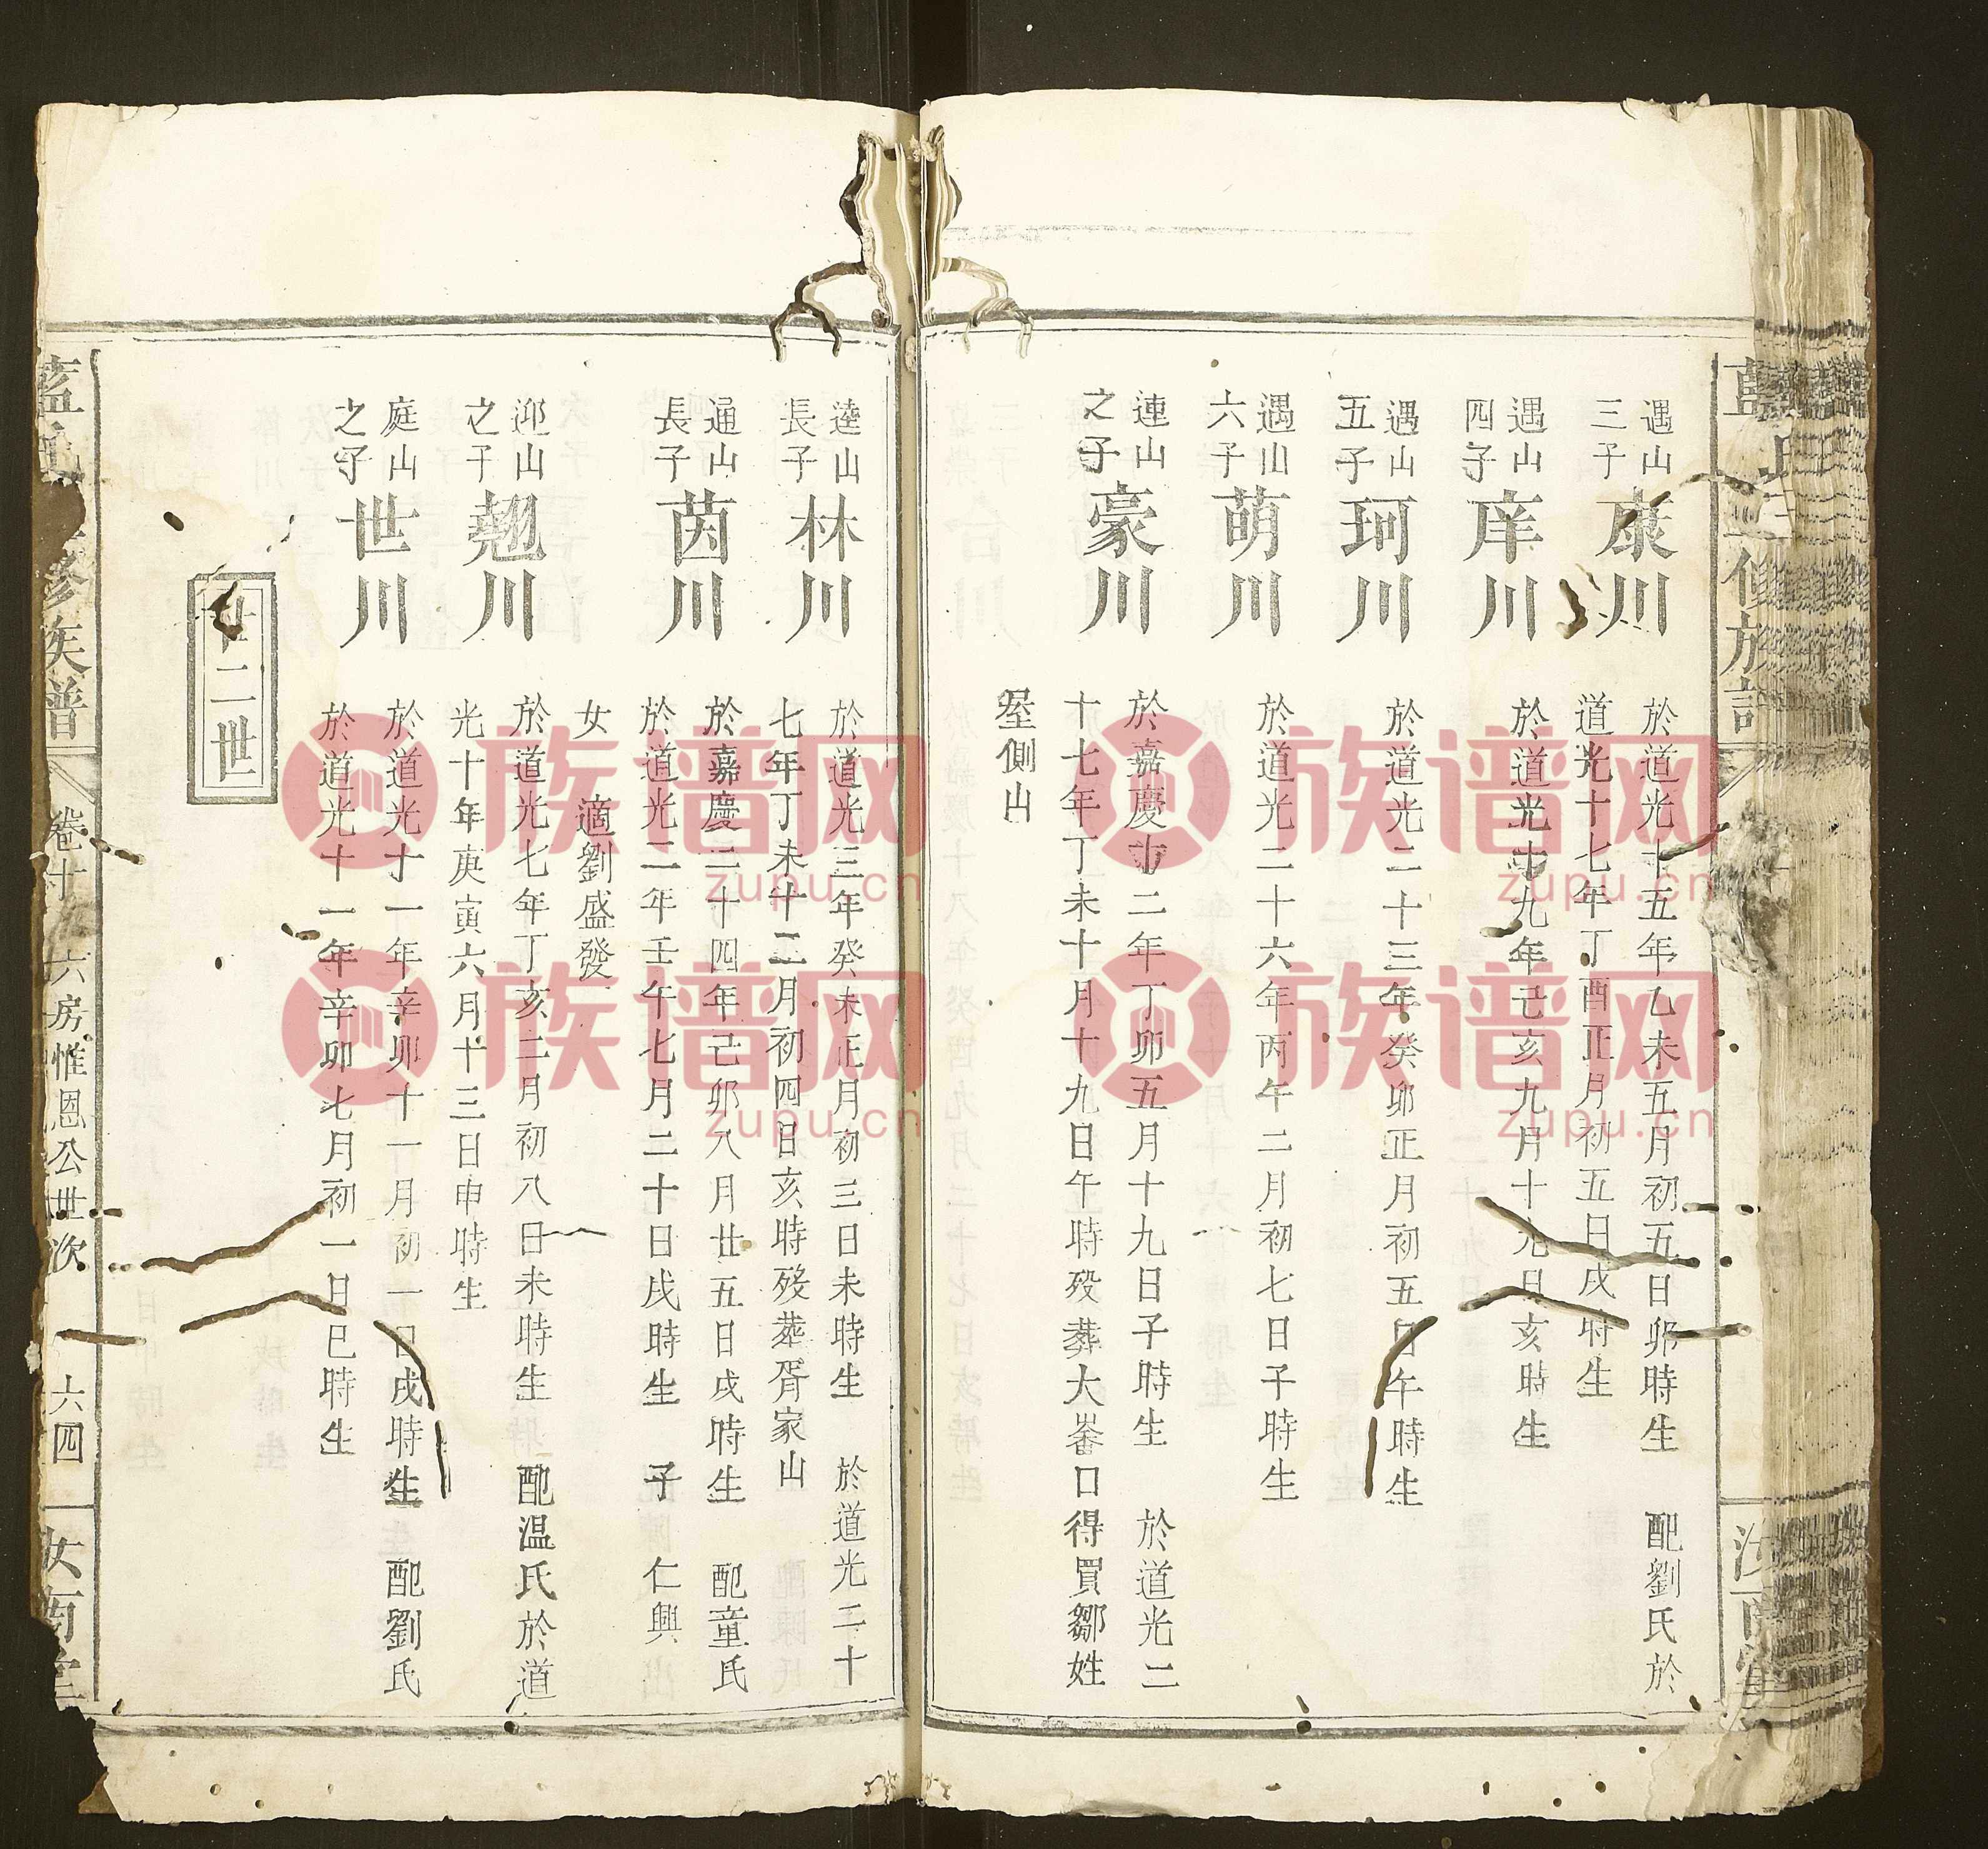 遇山三子
康川
於道光十五年乙未五月初五日卯時生 配劉氏於
道光十七年丁酉正月初五日戌時生
遇山四子
庠川
於道光十九年己亥九月十九日亥時生
遇山五子
珂川
於道光二十三年癸卯正月初五日午時生
遇山六子
萌川
於道光二十六年丙午二月初七日子時生
連山之子
豪川
於嘉慶十二年丁卯五月十九日子時生 於道光二
十七年丁未十月十九日午時歿葬大崙口得買鄒姓
屋側山
逵山長子
林川
於道光三年癸未正月初三日未時生 於道光二十
七年丁未十二月初四日亥時歿葬胥家山
通山長子
茵川
於嘉慶二十四年己卯八月廿五日戌時生 配童氏
於道光二年壬午七月二十日戌時生 子 仁興
女 適劉盛發
迎山之子
翹川
於道光七年丁亥二月初八日未時生 配温氏於道
光十年庚寅六月十三日申時生
庭山之子
世川
於道光十一年辛卯十一月初一日戌時生 配劉氏
於道光十一年辛卯七月初一日巳時生
廿二世
修族譜
卷十 六房惟恩公世次
六四
族谱网
zupu.cn
族谱网
zupu.cn
族谱网
zupu.cn
族谱网
zupu.cn